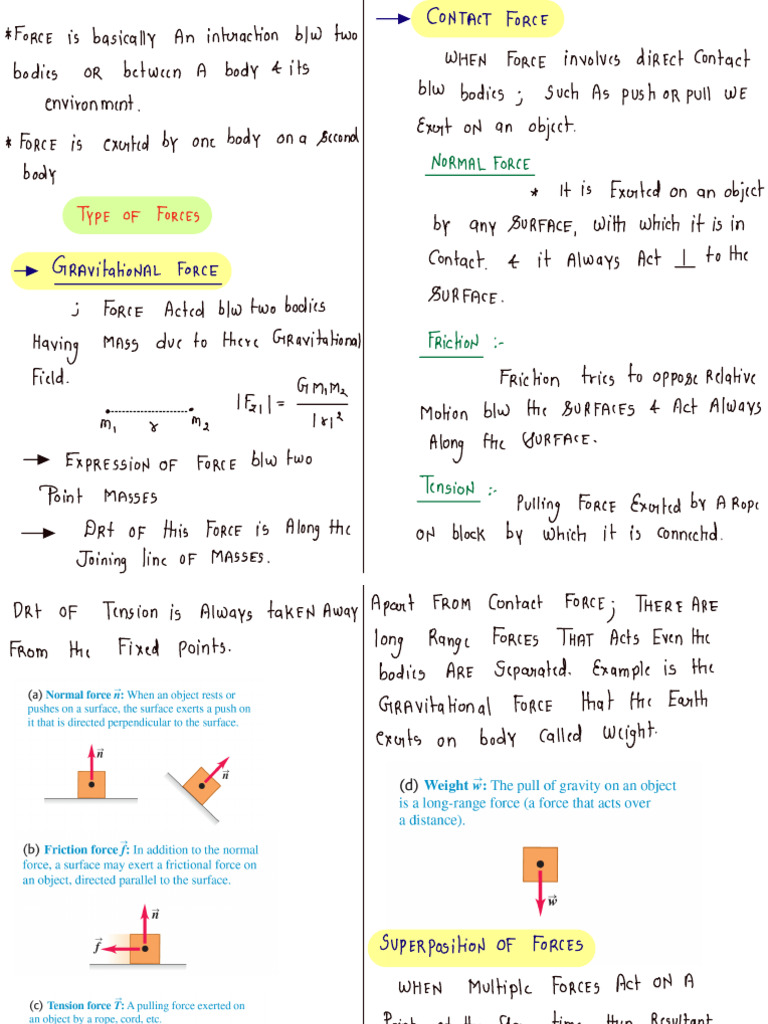 *FORCE is basically An interaction b/w two
bodies OR between A body & its
environment.
* FORCE is exerted by one body on a second
body
TYPE OF FORCES
→ GRAVITATIONAL FORCE
; FORCE Acted b/w two bodies
Having MASS due to there GRAVITATIONAL
Field.
m₁ r m₂
|F₂₁| = G m₁ m₂ / |r|²
→ EXPRESSION OF FORCE b/w two
Point MASSES
→ DRt OF this FORCE is Along the
Joining line OF MASSES.
→ CONTACT FORCE
WHEN FORCE involves direct contact
b/w bodies ; such As push OR pull WE
Exert ON an object.
NORMAL FORCE
* It is Exerted on an object
by any SURFACE, with which it is in
Contact. & it Always Act ⊥ to the
SURFACE.
FRICTION :-
FRICTION tries to oppose Relative
Motion b/w the SURFACES & Act Always
Along the SURFACE.
TENSION :-
Pulling FORCE Exerted by A ROPE
ON block by which it is connected.
DRt OF Tension is Always taken Away
From the Fixed points.
(a) Normal force n⃗: When an object rests or
pushes on a surface, the surface exerts a push on
it that is directed perpendicular to the surface.
n⃗
n⃗
(b) Friction force f⃗: In addition to the normal
force, a surface may exert a frictional force on
an object, directed parallel to the surface.
n⃗
f⃗
(c) Tension force T⃗: A pulling force exerted on
an object by a rope, cord, etc.
Apart FROM Contact FORCE; THERE ARE
long Range FORCES THAT Acts Even the
bodies ARE Separated. Example is the
GRAVITATIONAL FORCE that the Earth
exerts on body called weight.
(d) Weight w⃗: The pull of gravity on an object
is a long-range force (a force that acts over
a distance).
w⃗
SUPERPOSITION OF FORCES
WHEN Multiple FORCES Act ON A
Point at the time then Resultant